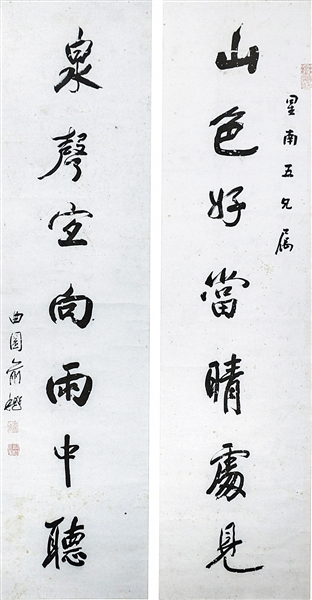 星南五兄屬
山色好當晴處見
泉聲宜向雨中聽
曲園俞樾